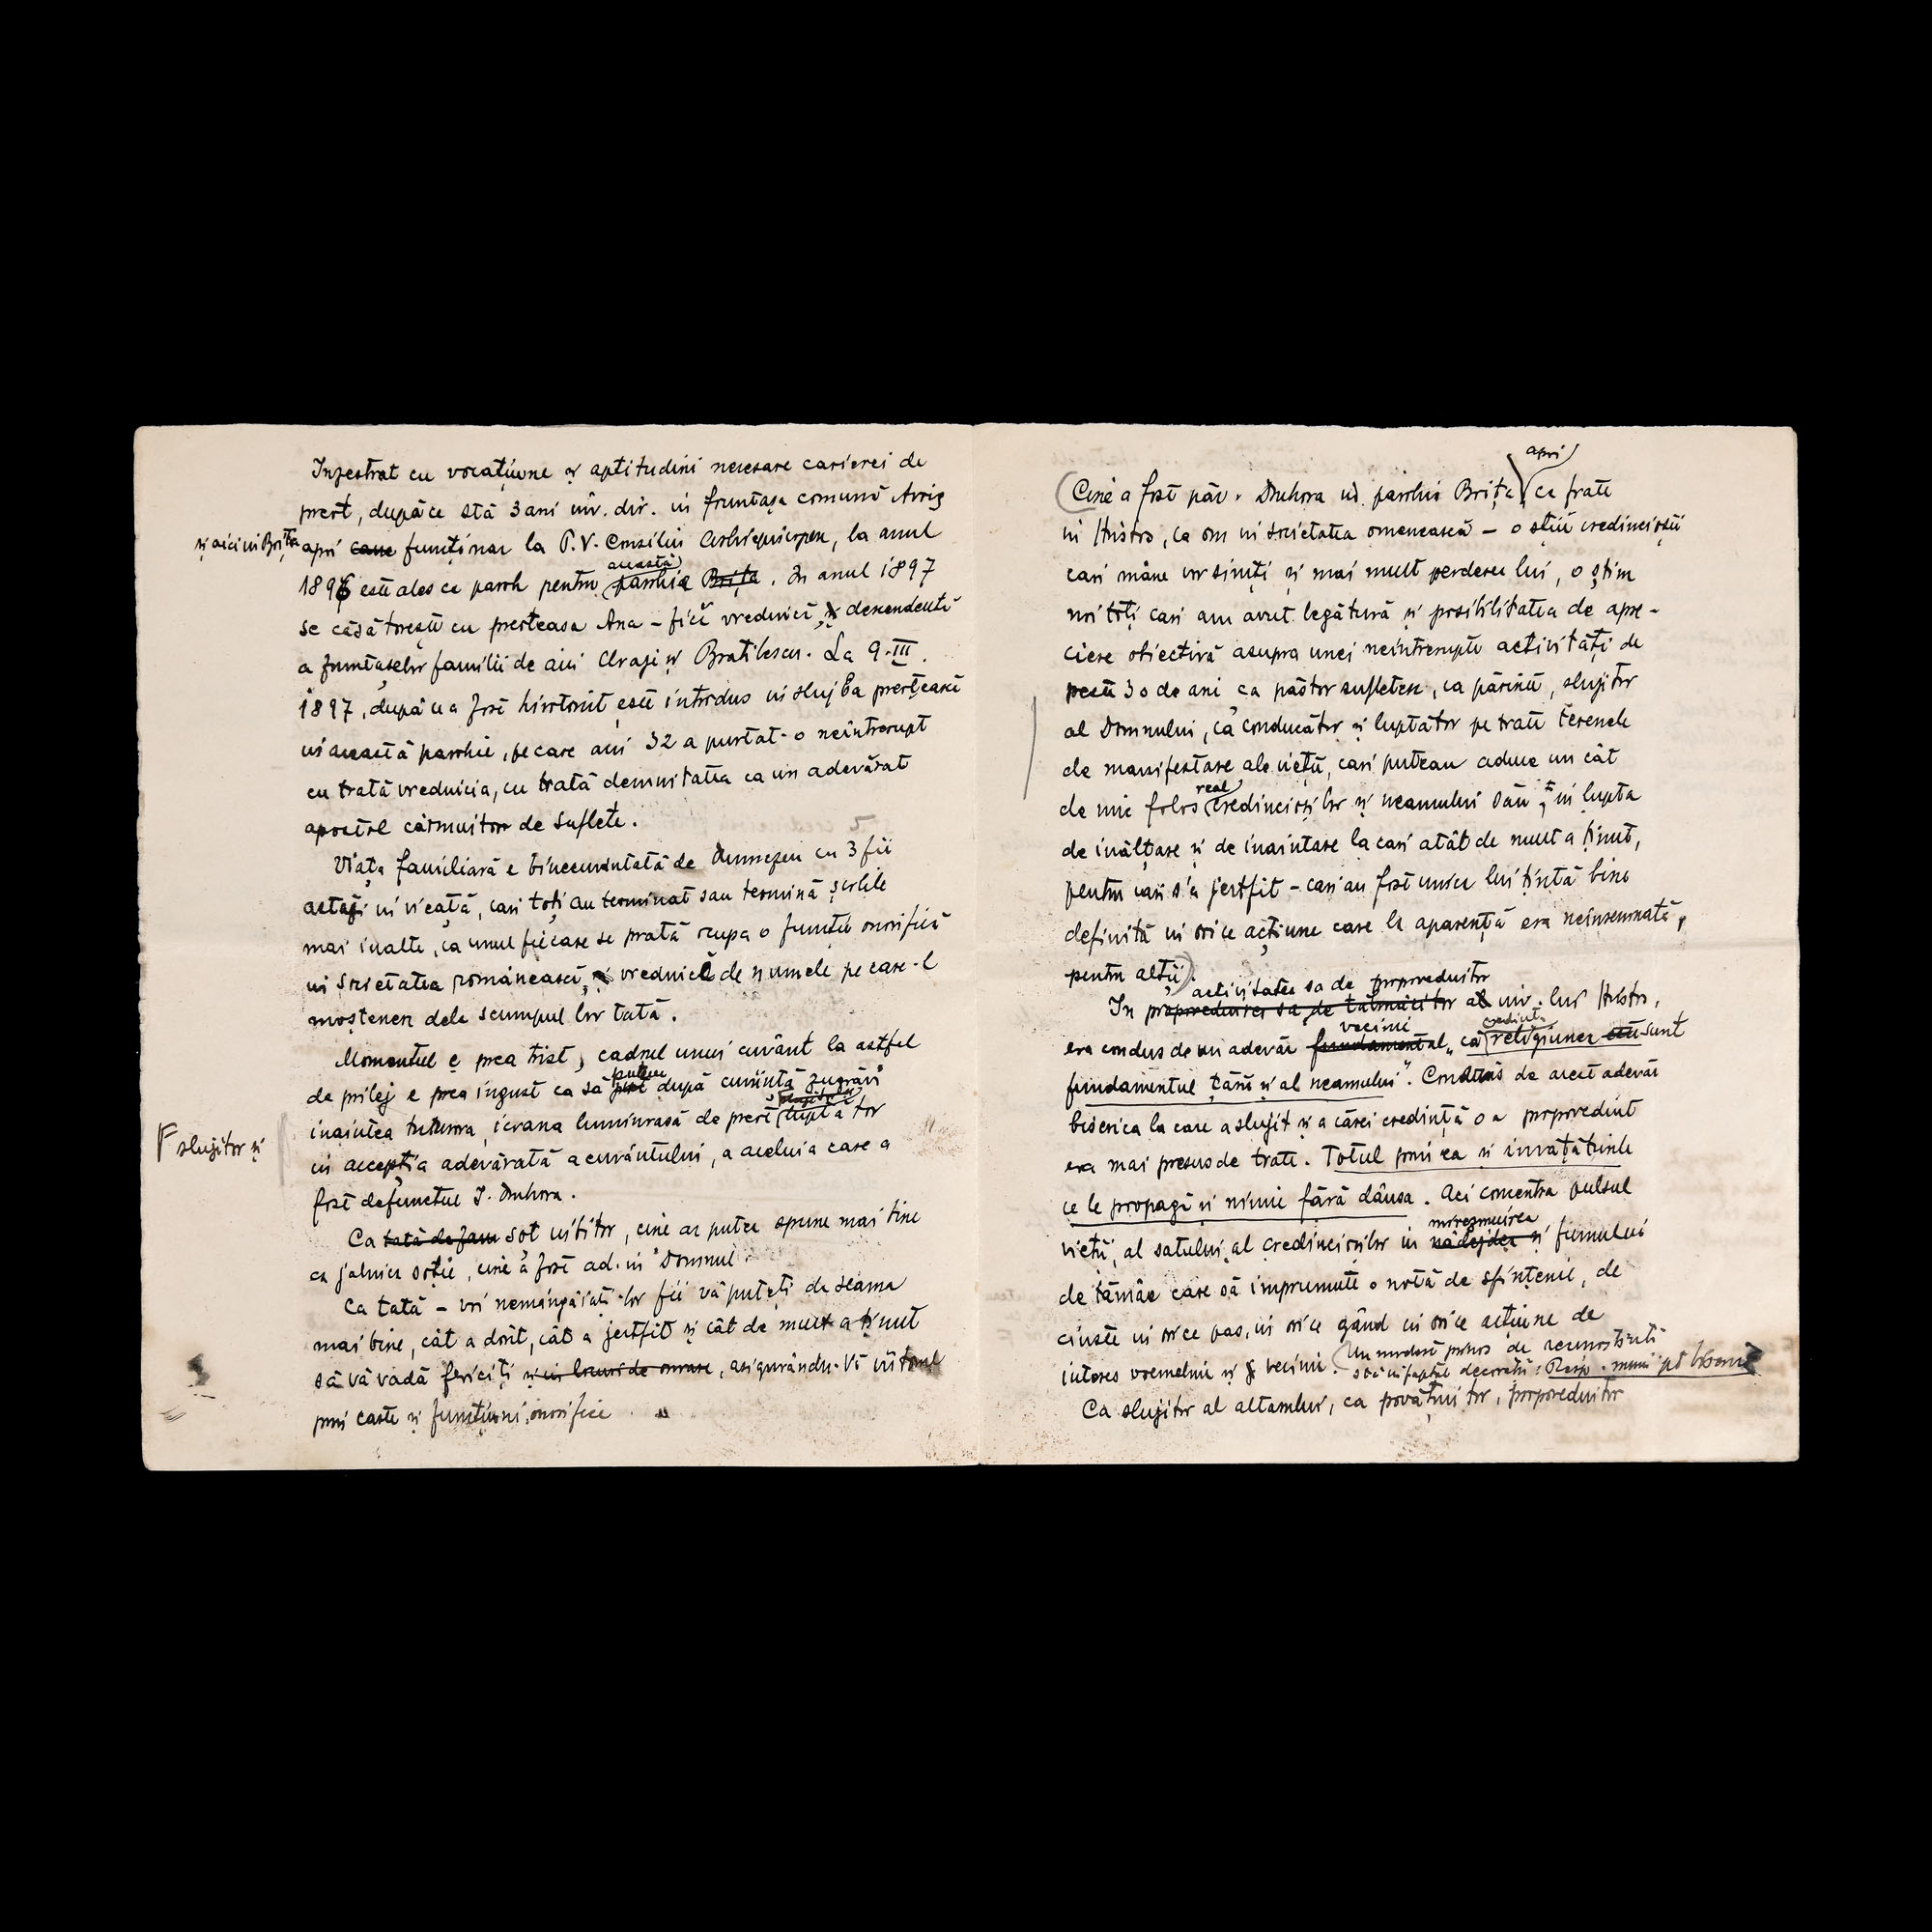 Inzestrat cu vocațiune și aptitudini necesare carierei de
preot, după ce stă 3 ani inv. dir. in fruntașa comună Avrig
și aici in Brița apoi care funținar la P.V. Consiliu Arhiepiscopesc, la anul
1896 este ales ca paroh pentru această parohia Brița. In anul 1897
se căsătorește cu preoteasa Ana – fiică vrednică și dexendentă
a fruntașelor familii de aici și Bratilescu. La 9.III.
1897, după ce a fost hirotonit este introdus in slujba preoțească
in această parohie, pe care ani 32 a purtat-o neintrerupt
cu toată vrednicia, cu toată demnitatea ca un adevărat
apostol cârmuitor de suflete.
Viața familiară e binecuvântată de Dumnezeu cu 3 fii
astăzi in vieată, cari toți au terminat sau termină școlile
mai inalte, ca unul fiecare se poată ocupa o funție onorifică
in societatea românească, și vrednică de numele pe care-l
moștenesc dela scumpul lor tată.
Momentul e prea trist, cadrul unui cuvânt la astfel
de prilej e prea ingust ca să putea pot după cuviință zugrăvi
inaintea tuturora, icoana luminoasă de preot luptător
slujitor și
in accepția adevărată a cuvântului, a aceluia care a
fost defunctul I. Duhora.
Ca tată de fam soț iubitor, cine ar putea spune mai bine
ca jalnica soție, cine a fost ad. in Domnul.
Ca tată – voi nemângăiaților fii vă puteți da seama
mai bine, cât a dorit, cât a jertfit și cât de mult a ținut
să vă vadă fericiți și in locuri de onoare, asigurându-Vă viitorul
prin carte și funțiuni onorifice
apoi
Cine a fost păr. Duhora in parohia Brița ca frate
in Hristos, ca om in societatea omenească – o știu credincioșii
cari mâne vor simți și mai mult perderea lui, o știm
noi toți cari am avut legătură și posibilitatea de apre-
ciere obiectivă asupra unei neintrerupte activități de
peste 30 de ani ca păstor sufletesc, ca părinte, slujitor
al Domnului, ca conducător și luptător pe toate terenele
de manifestare ale vieții, cari puteau aduce un cât
de mic folos real credincioșilor și neamului său in lupta
de inălțare și de inaintare la cari atât de mult a ținut,
pentru cari s'a jertfit – cari au fost unica lui țintă bine
definită in orice acțiune care la aparență era neinsemnată,
pentru alții.
activitatea sa de propoveduitor
In propoveduirea sa de talmăcitor al inv. lui Hristos,
era condus de un adevăr vecinic fundamental, „că credința religiunea este sunt
fundamentul țării și al neamului". Condus de acest adevăr
biserica la care a slujit și a cărei credință o a propoveduit
era mai presus de toate. Totul prin ea și invățăturile
ce le propagă și nimic fără dânsa. Aci concentra pulsul
vieții, al satului, al credincioșilor in miresmuirea nădejdea și fumului
de tămâe care să imprumute o notă de sfințenie, de
cinste in orice pas, in orice gând in orice acțiune de
interes vremelnic și vecinic. Un modest prinos de recunoștință
stă in faptul decorații: Resp. muncii pt biserică
Ca slujitor al altarului, ca povățuitor, propoveduitor